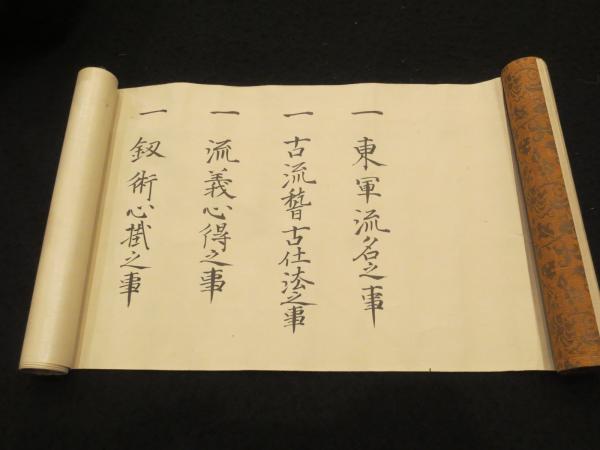 一 東軍流名之事
一 古流稽古仕法之事
一 流義心得之事
一 釼術心掛之事